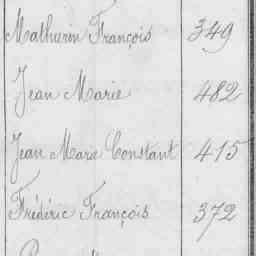 Mathurin François 349
Jean Marie 482
Jean Marie Constant 415
Frédéric François 372